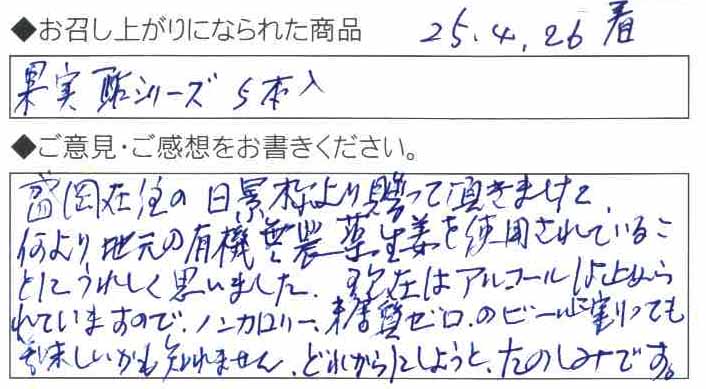 ◆お召し上がりになられた商品 25.4.26着
果実酢シリーズ 5本入
◆ご意見・ご感想をお書きください。
盛岡在住の日景様より贈って頂きました。
何より地元の有機無農薬生姜を使用されているこ
とにうれしく思いました。現在はアルコールは止められ
れていますので、ノンカロリー、糖質ゼロ、のビールに割っても
美味しいかも知れません。どれからにしようと、たのしみです。